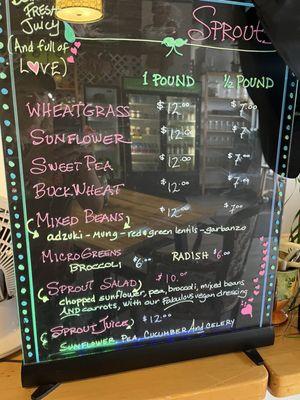 Fresh
Juicy
(And full of
LOVE)
Sprouts
1 POUND ½ POUND
WHEATGRASS $12.00 $7.00
SUNFLOWER $12.00 $7.00
SWEET PEA $12.00 $7.00
BUCKWHEAT $12.00 $7.00
MIXED BEANS $12.00 $7.00
adzuki - mung - red & green lentils - garbanzo
MICROGREENS
BROCCOLI $6.00 RADISH $6.00
SPROUT SALAD $10.00
chopped sunflower, pea, broccoli, mixed beans
AND carrots, with our Fabulous vegan dressing
SPROUT JUICE $12.00
SUNFLOWER, PEA, CUCUMBER AND CELERY